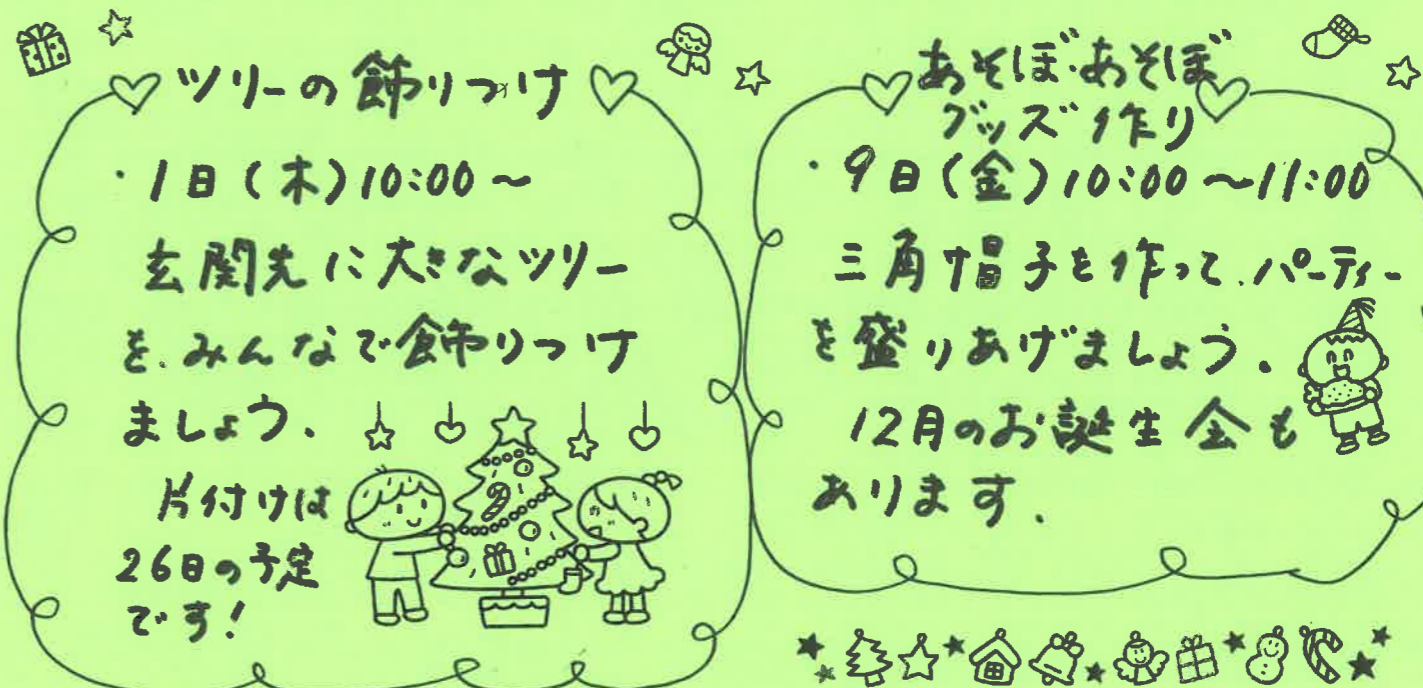 ツリーの飾りつけ
・1日(木)10:00~
玄関先に大きなツリー
を、みんなで飾りつけ
ましょう、
片付けは
26日の予定
です!
あそぼ・あそぼ
グッズ作り
・9日(金)10:00~11:00
三角帽子を作って、パーティー
を盛りあげましょう。
12月のお誕生会も
あります.